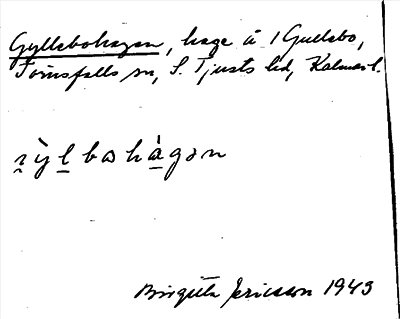 Gyllebohagen, hage å 1 Gullebo,
Törnsfalls sn, S. Tjusts hd, Kalmar l.
bohàgən
Birgitta Ericsson 1943